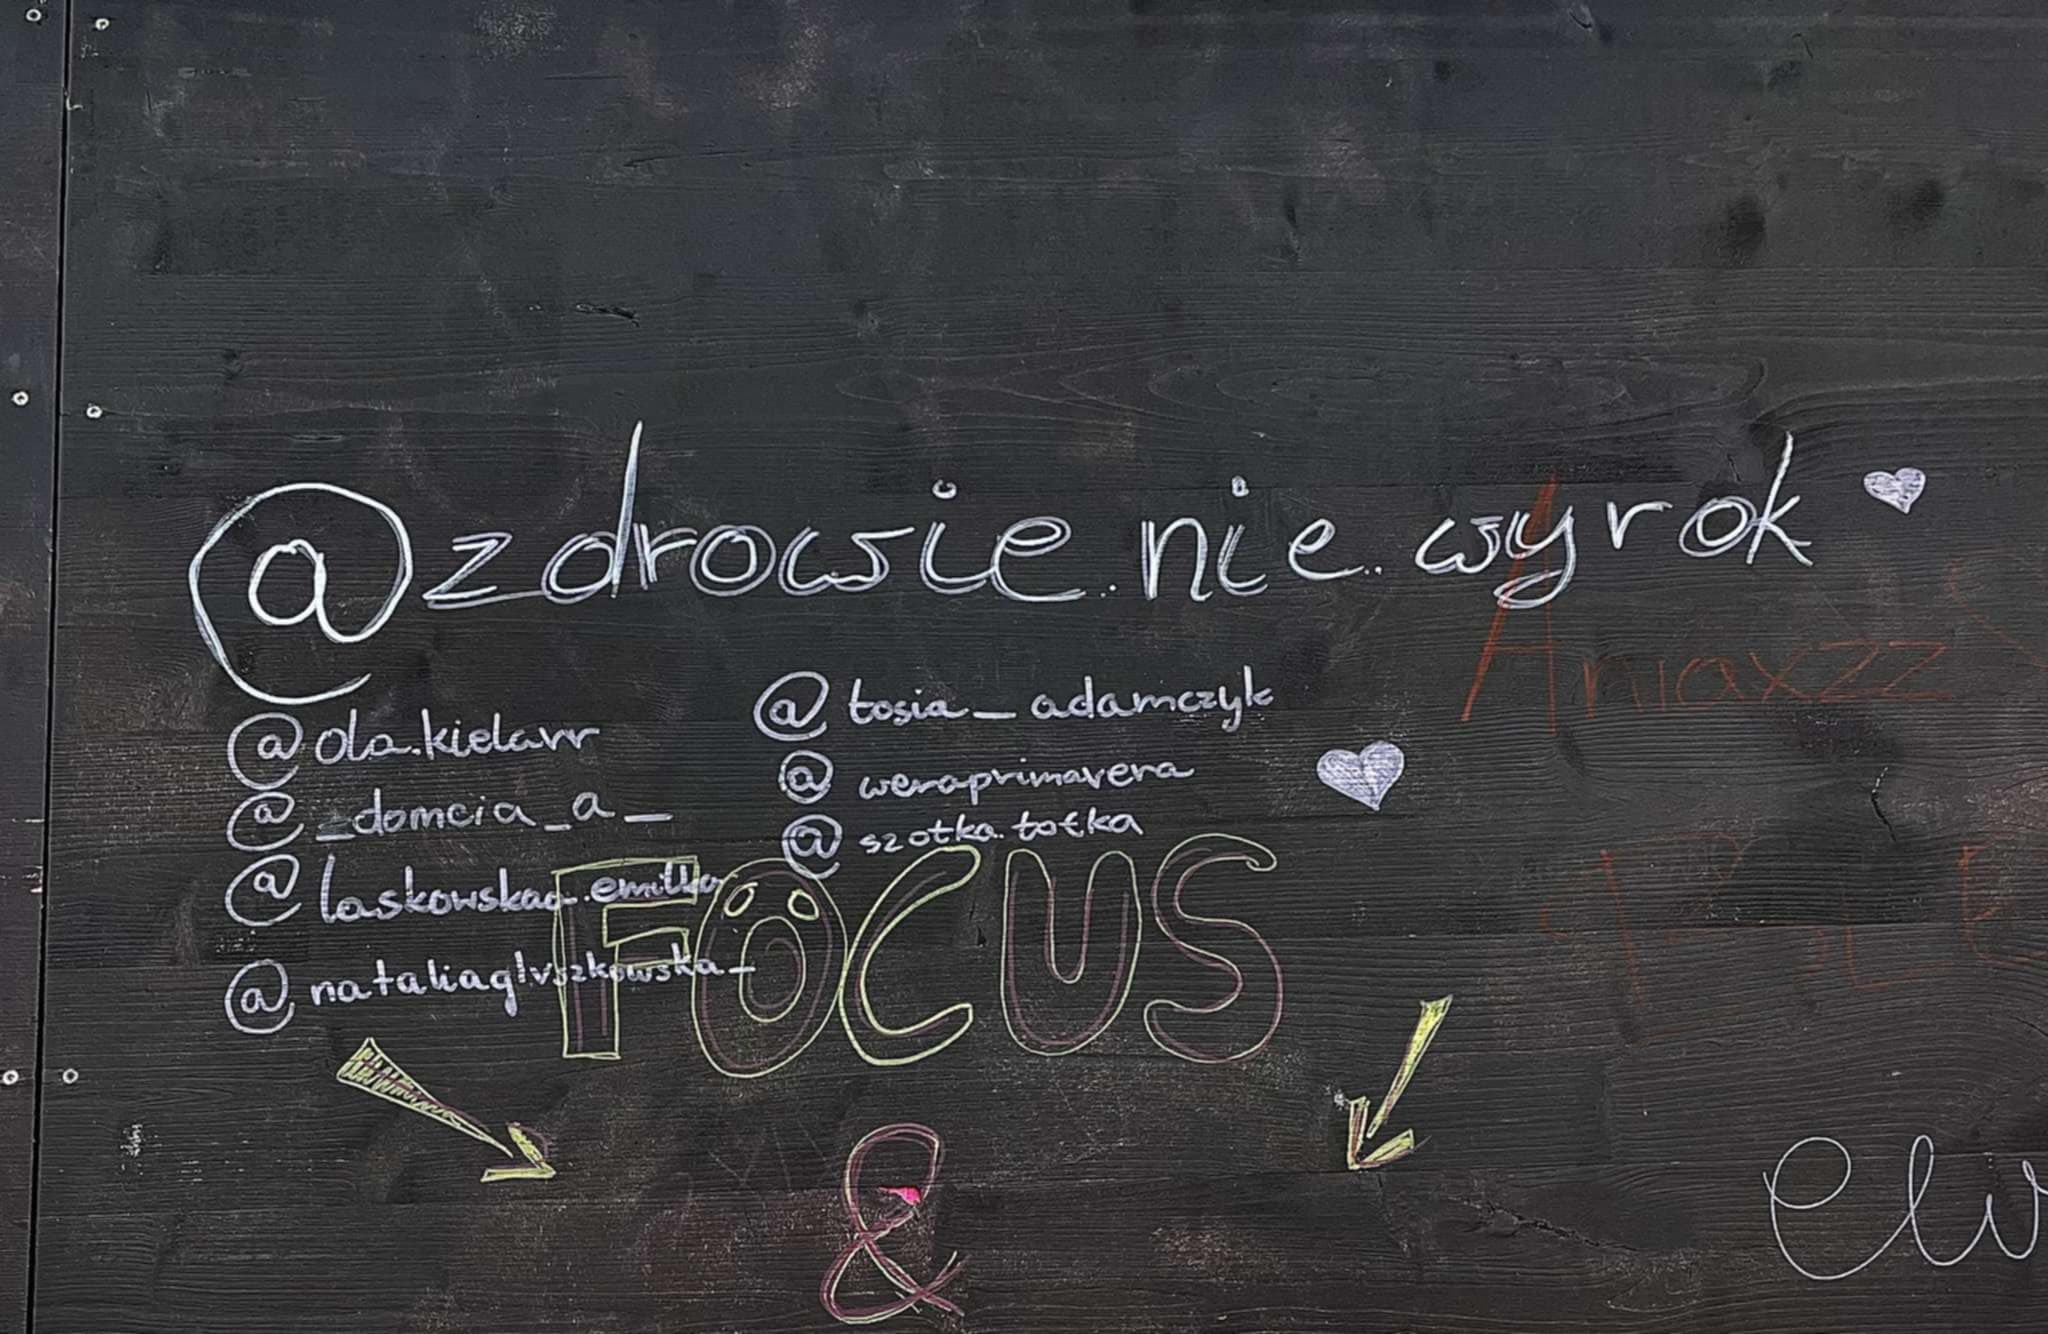 @zdrowie.nie.wyrok
Aniaxzz
@ola.kielarr
@_domcia_a_
@laskowskaa.emilka
@nataliagluszkowska_
@tosia_adamczyk
@weraprimavera
@szotka.totka
FOCUS
&